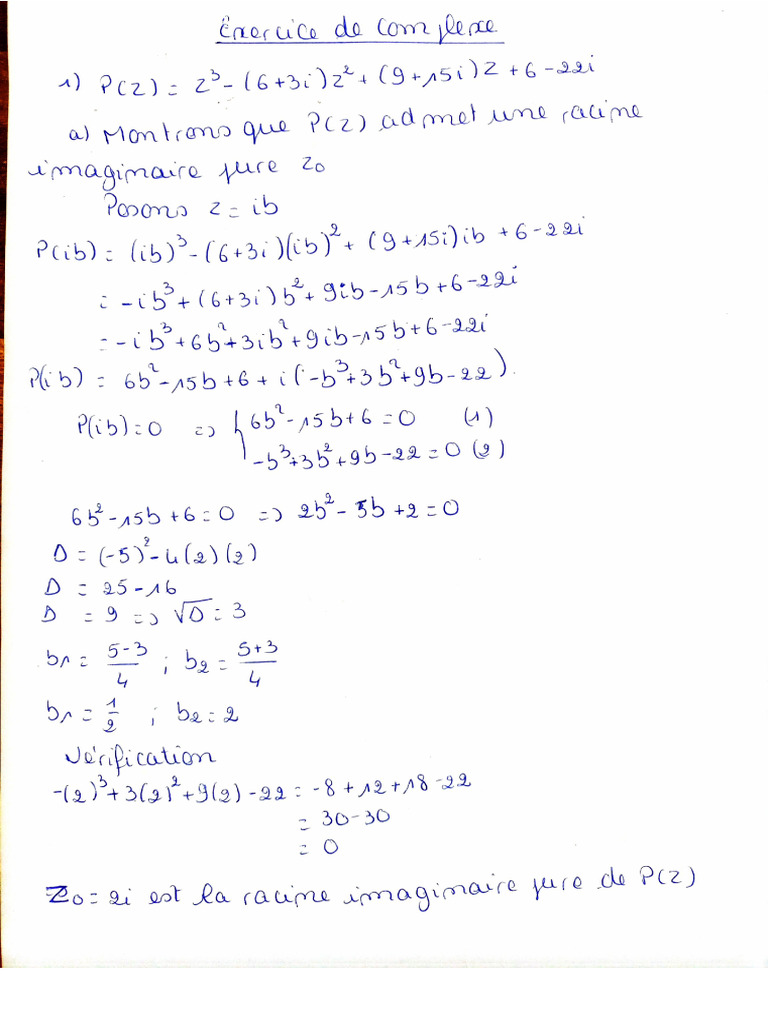 Exercice de complexe
1) P(Z) = Z³-(6+3i)Z²+(9+15i)Z+6-22i
a) Montrons que P(Z) admet une racine
imaginaire pure Z₀
Posons Z = ib
P(ib) = (ib)³-(6+3i)(ib)²+(9+15i)ib+6-22i
= -ib³+(6+3i)b²+9ib-15b+6-22i
= -ib³+6b²+3ib²+9ib-15b+6-22i
P(ib) = 6b²-15b+6+i(-b³+3b²+9b-22).
P(ib)=0 => { 6b²-15b+6=0 (1)
-b³+3b²+9b-22=0 (2)
6b²-15b+6=0 => 2b²-5b+2=0
Δ = (-5)²-4(2)(2)
Δ = 25-16
Δ = 9 => √Δ = 3
b₁ = (5-3)/4 ; b₂ = (5+3)/4
b₁ = 1/2 ; b₂ = 2
Vérification
-(2)³+3(2)²+9(2)-22 = -8+12+18-22
= 30-30
= 0
Z₀ = 2i est la racine imaginaire pure de P(Z)